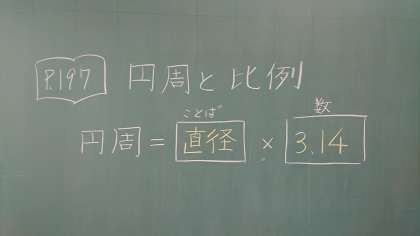 P.197 円周と比例
ことば 数
円周 = 直径 × 3.14